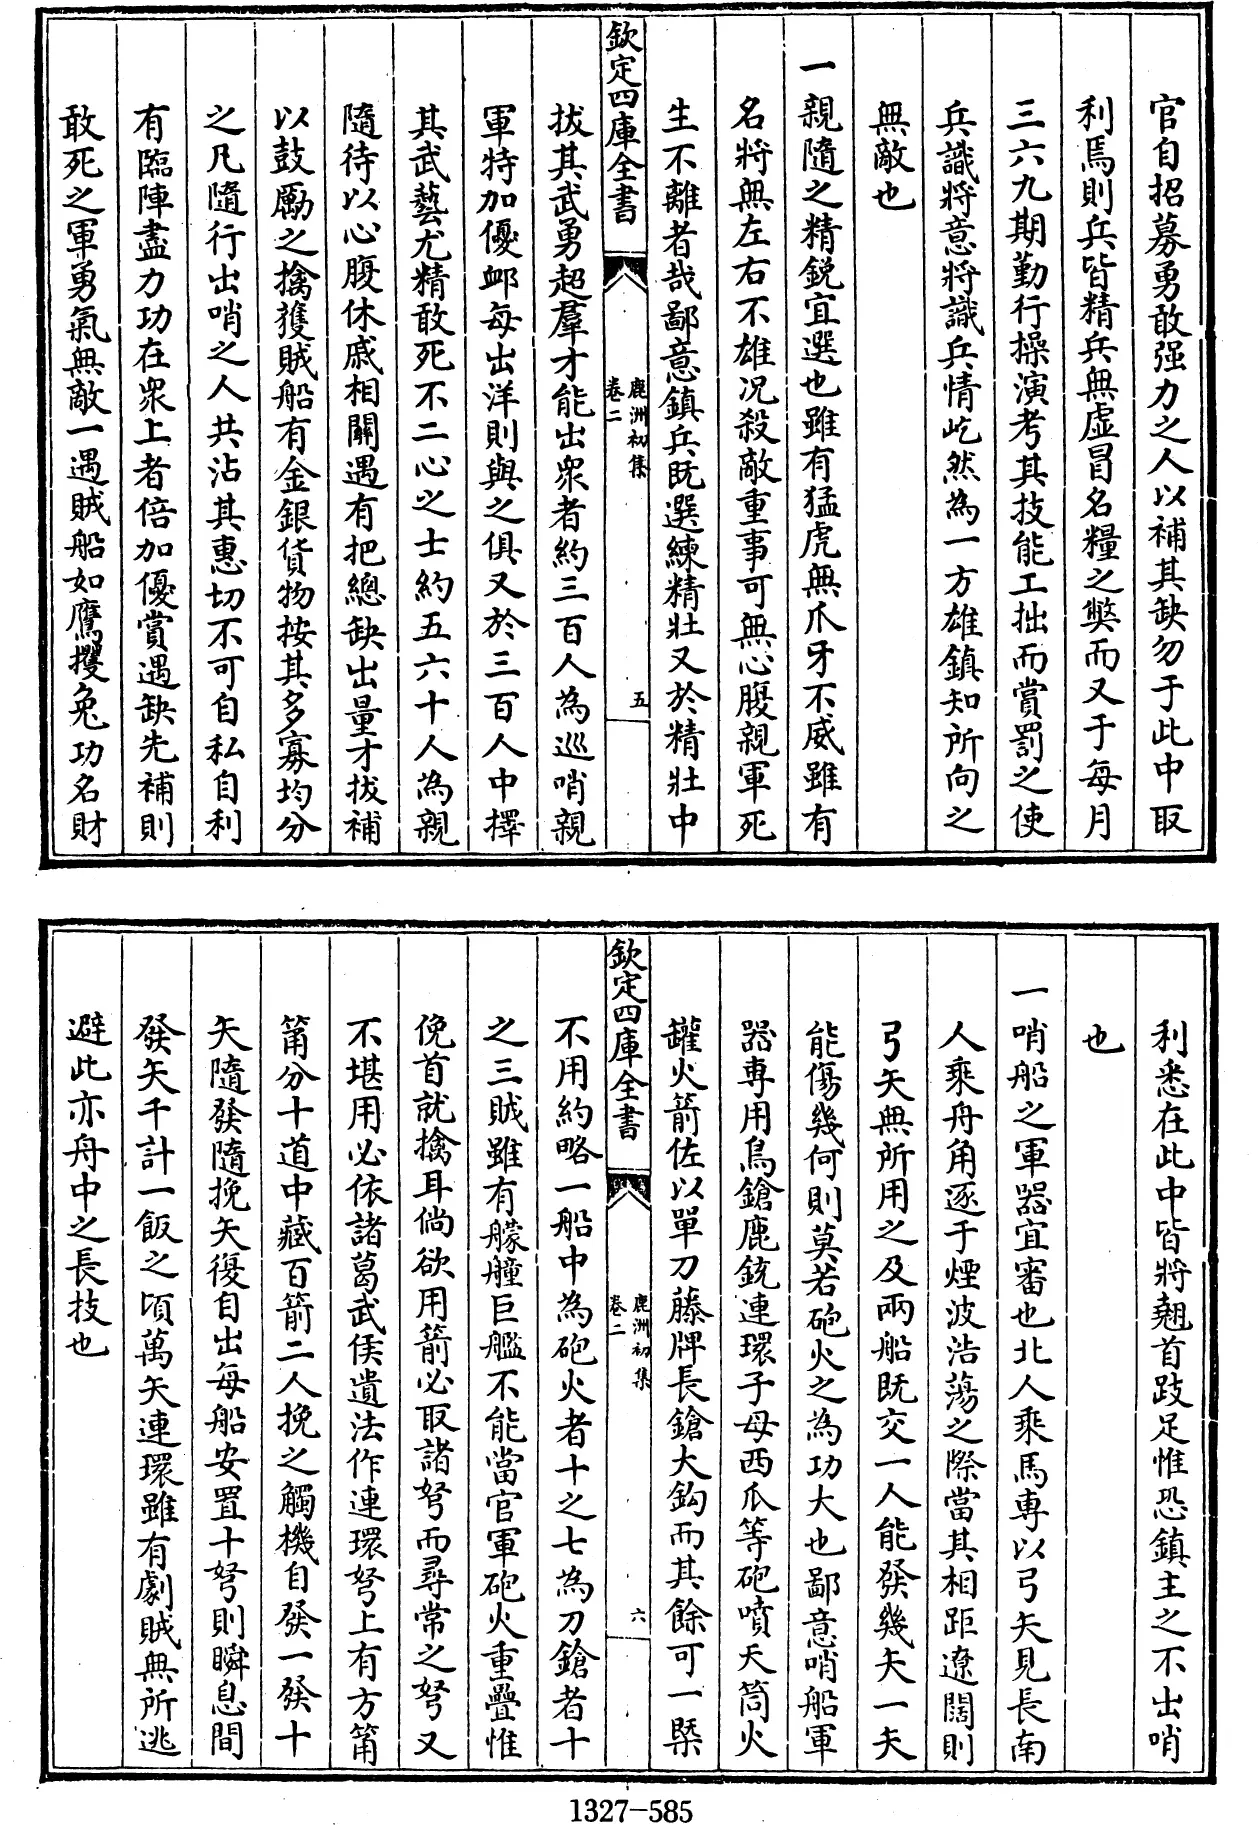 官自招募勇敢强力之人以補其缺勿于此中取
利焉則兵皆精兵無虛冒名糧之獘而又于每月
三六九期勤行操演考其技能工拙而賞罰之使
兵識將意將識兵情屹然為一方雄鎮知所向之
無敵也
一親隨之精鋭宜選也雖有猛虎無爪牙不威雖有
名將無左右不雄况殺敵重事可無心腹親軍死
生不離者哉鄙意鎮兵既選練精壯又於精壯中
欽定四庫全書
鹿洲初集
卷二
五
拔其武勇超羣才能出衆者約三百人為巡哨親
軍特加優䘏每出洋則與之俱又於三百人中擇
其武藝尤精敢死不二心之士約五六十人為親
隨待以心腹休戚相關遇有把總缺出量才拔補
以鼓勵之擒獲賊船有金銀貨物按其多寡均分
之凡隨行出哨之人共沾其惠切不可自私自利
有臨陣盡力功在衆上者倍加優賞遇缺先補則
敢死之軍勇氣無敵一遇賊船如鷹攫兔功名財
利悉在此中皆將翹首跂足惟恐鎮主之不出哨
也
一哨船之軍器宜審也北人乘馬專以弓矢見長南
人乘舟角逐于煙波浩蕩之際當其相距遼闊則
弓矢無所用之及兩船既交一人能發幾矢一矢
能傷幾何則莫若砲火之為功大也鄙意哨船軍
器專用鳥鎗鹿銃連環子母西瓜等砲噴天筒火
鑵火箭佐以單刀藤牌長鎗大鈎而其餘可一槩
欽定四庫全書
鹿洲初集
卷二
六
不用約略一船中為砲火者十之七為刀鎗者十
之三賊雖有艨艟巨艦不能當官軍砲火重疊惟
俛首就擒耳倘欲用箭必取諸弩而尋常之弩又
不堪用必依諸葛武侯遺法作連環弩上有方筩
筩分十道中藏百箭二人挽之觸機自發一發十
矢隨發隨挽矢復自出每船安置十弩則瞬息間
發矢千計一飯之頃萬矢連環雖有劇賊無所逃
避此亦舟中之長技也
1327-585